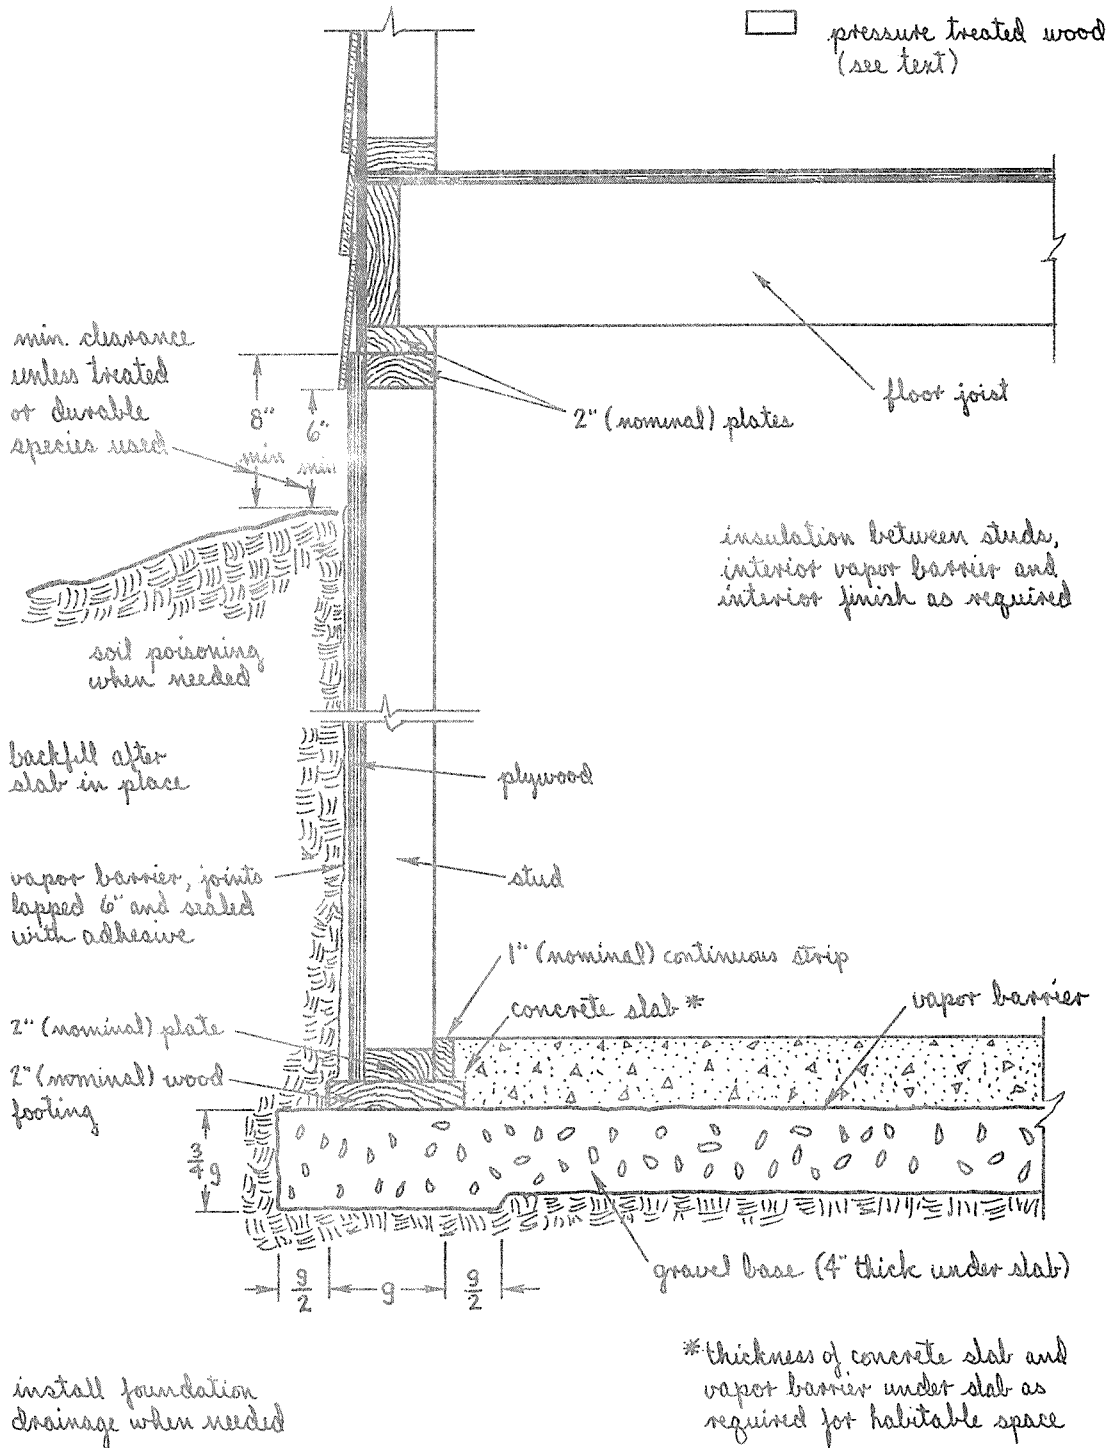 pressure treated wood
(see text)
min. clearance
unless treated
or durable
species used
8"
min
6"
min
2" (nominal) plates
floor joist
insulation between studs,
interior vapor barrier and
interior finish as required
soil poisoning
when needed
backfill after
slab in place
plywood
vapor barrier, joints
lapped 6" and sealed
with adhesive
stud
1" (nominal) continuous strip
concrete slab *
vapor barrier
2" (nominal) plate
2" (nominal) wood
footing
3/4 g
g/2
g
g/2
gravel base (4" thick under slab)
* thickness of concrete slab and
vapor barrier under slab as
required for habitable space
install foundation
drainage when needed